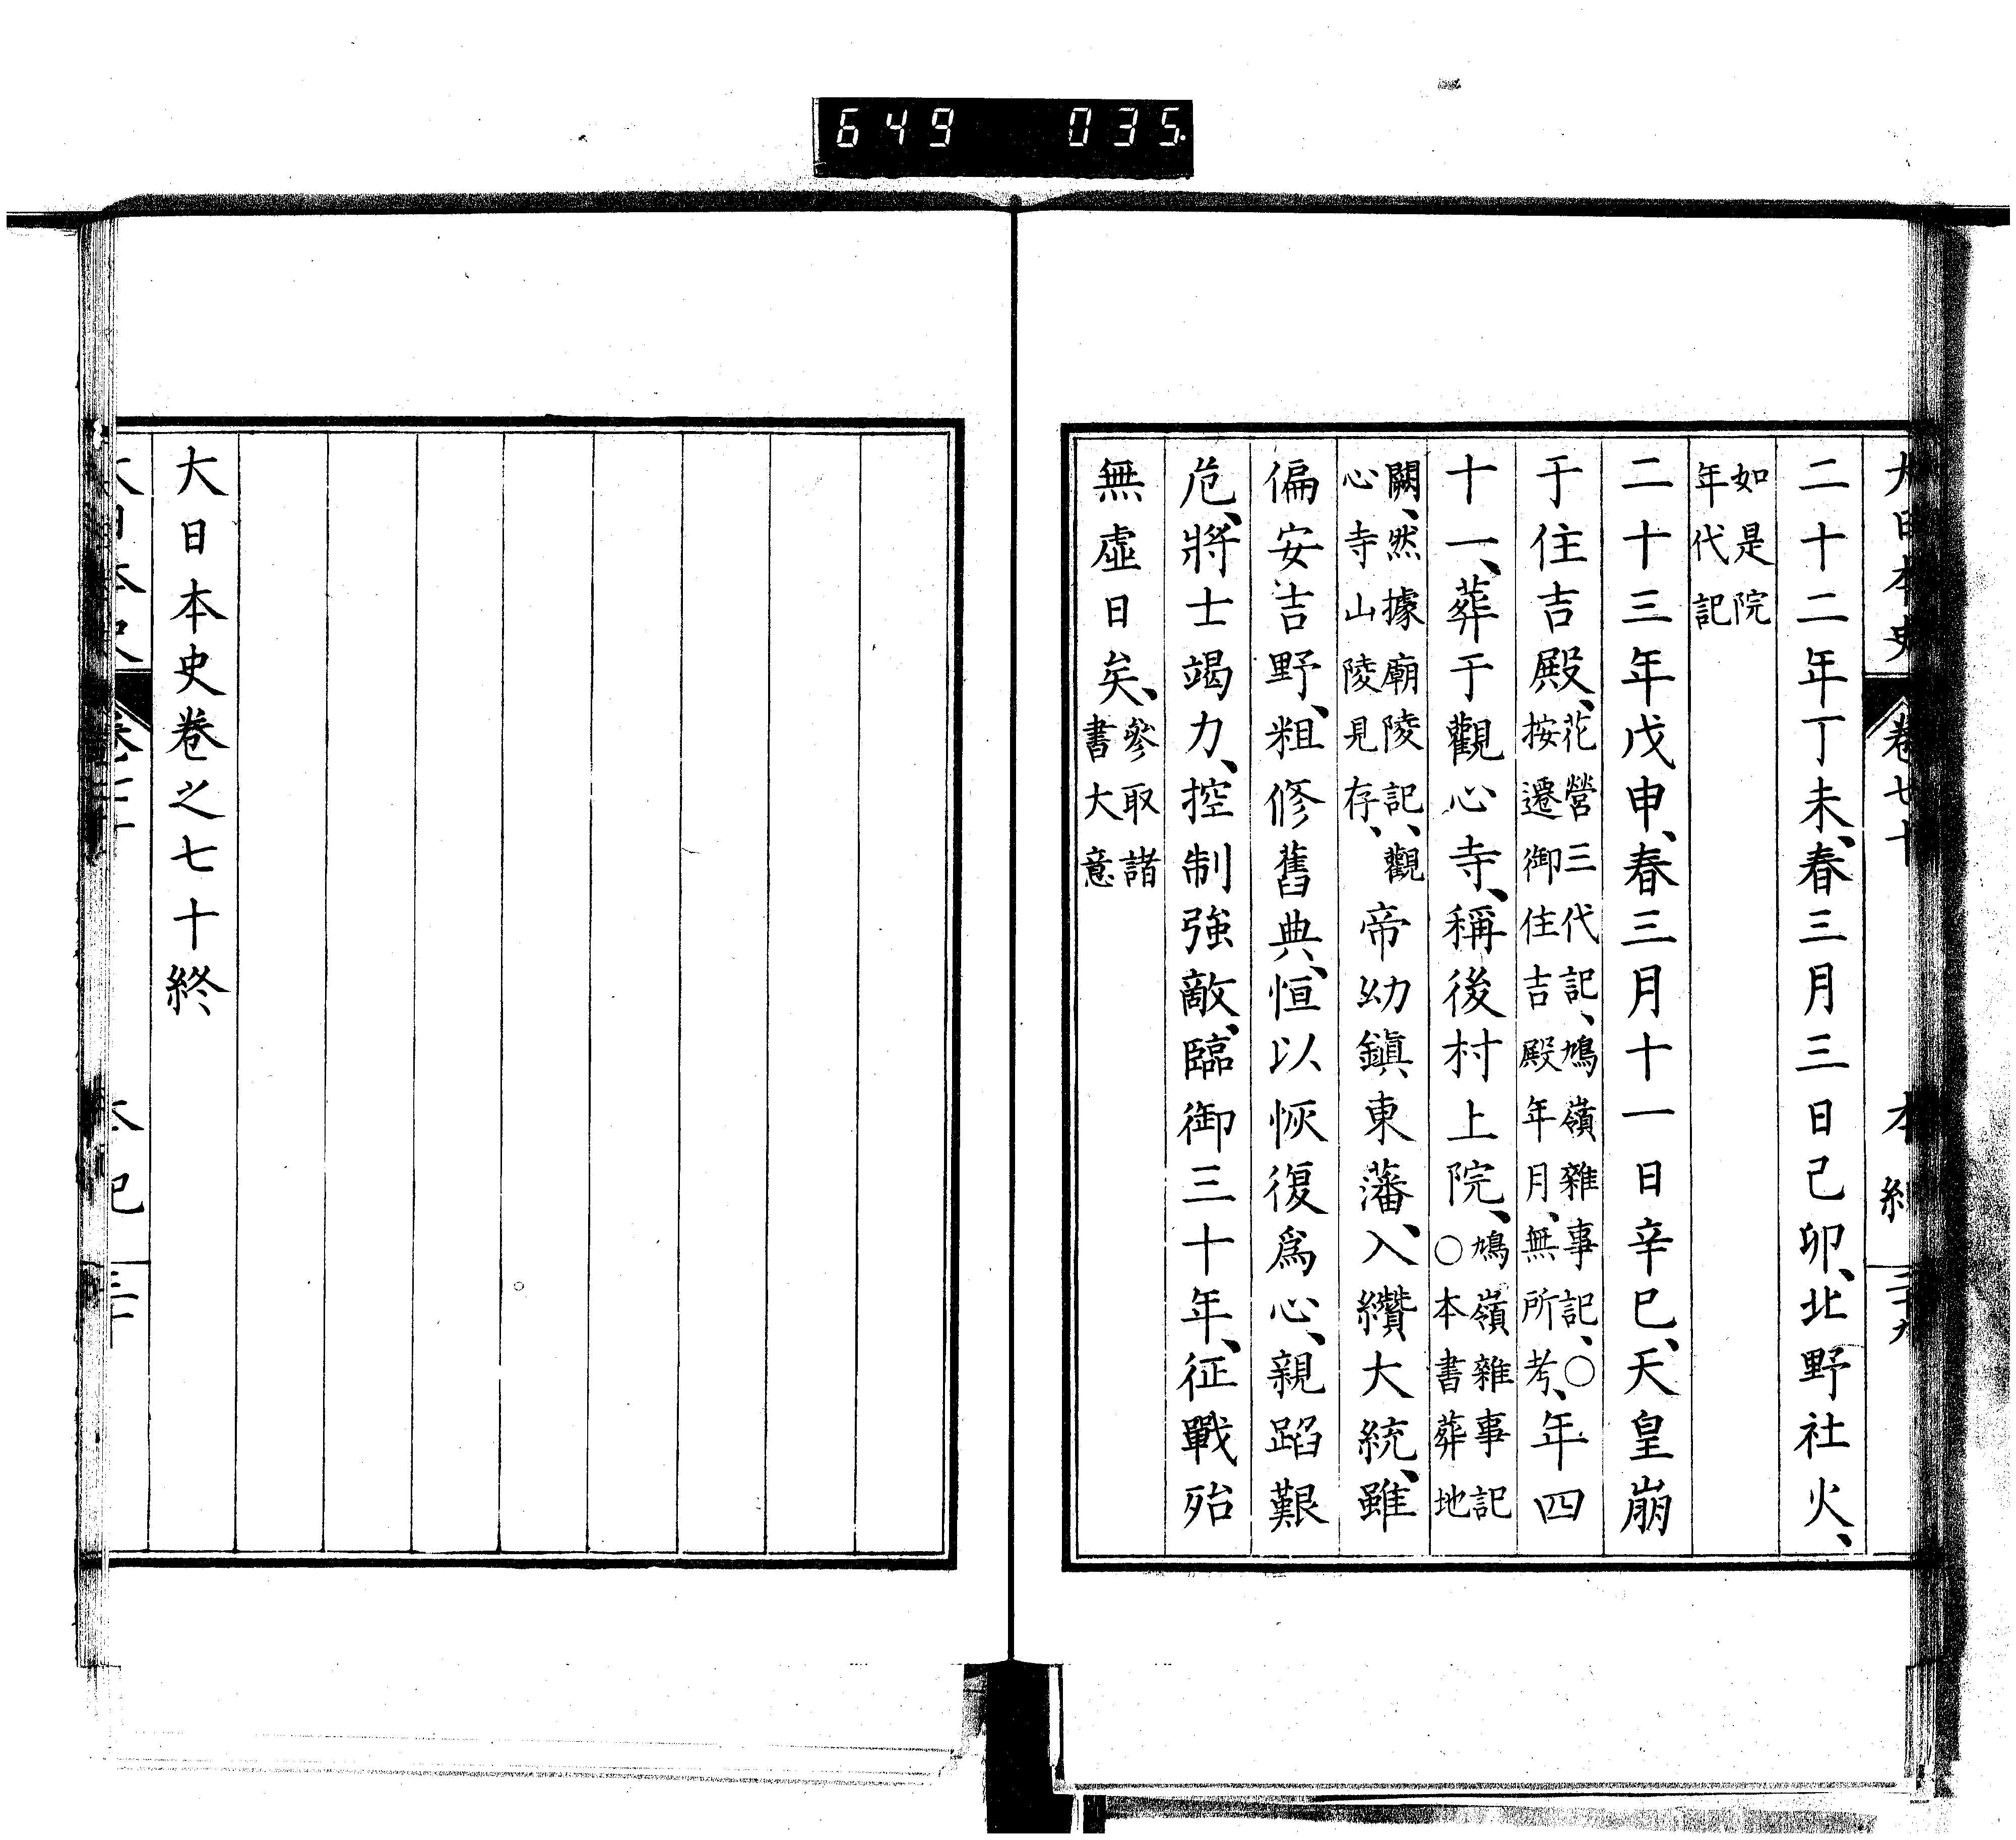 649 035
大日本史 卷七十 本紀 二十九
二十二年丁未、春三月三日己卯、北野社火、
如是院
年代記
二十三年戊申、春三月十一日辛巳、天皇崩
于住吉殿、花營三代記、鳩嶺雜事記、○
按遷御住吉殿年月、無所考、年四
十一、葬于觀心寺、稱後村上院、鳩嶺雜事記
○本書葬地
闕、然據廟陵記、觀
心寺山陵見存、帝幼鎭東藩、入纘大統、雖
偏安吉野、粗修舊典、恒以恢復爲心、親蹈艱
危、將士竭力、控制強敵、臨御三十年、征戰殆
無虛日矣、參取諸
書大意
大日本史卷之七十終